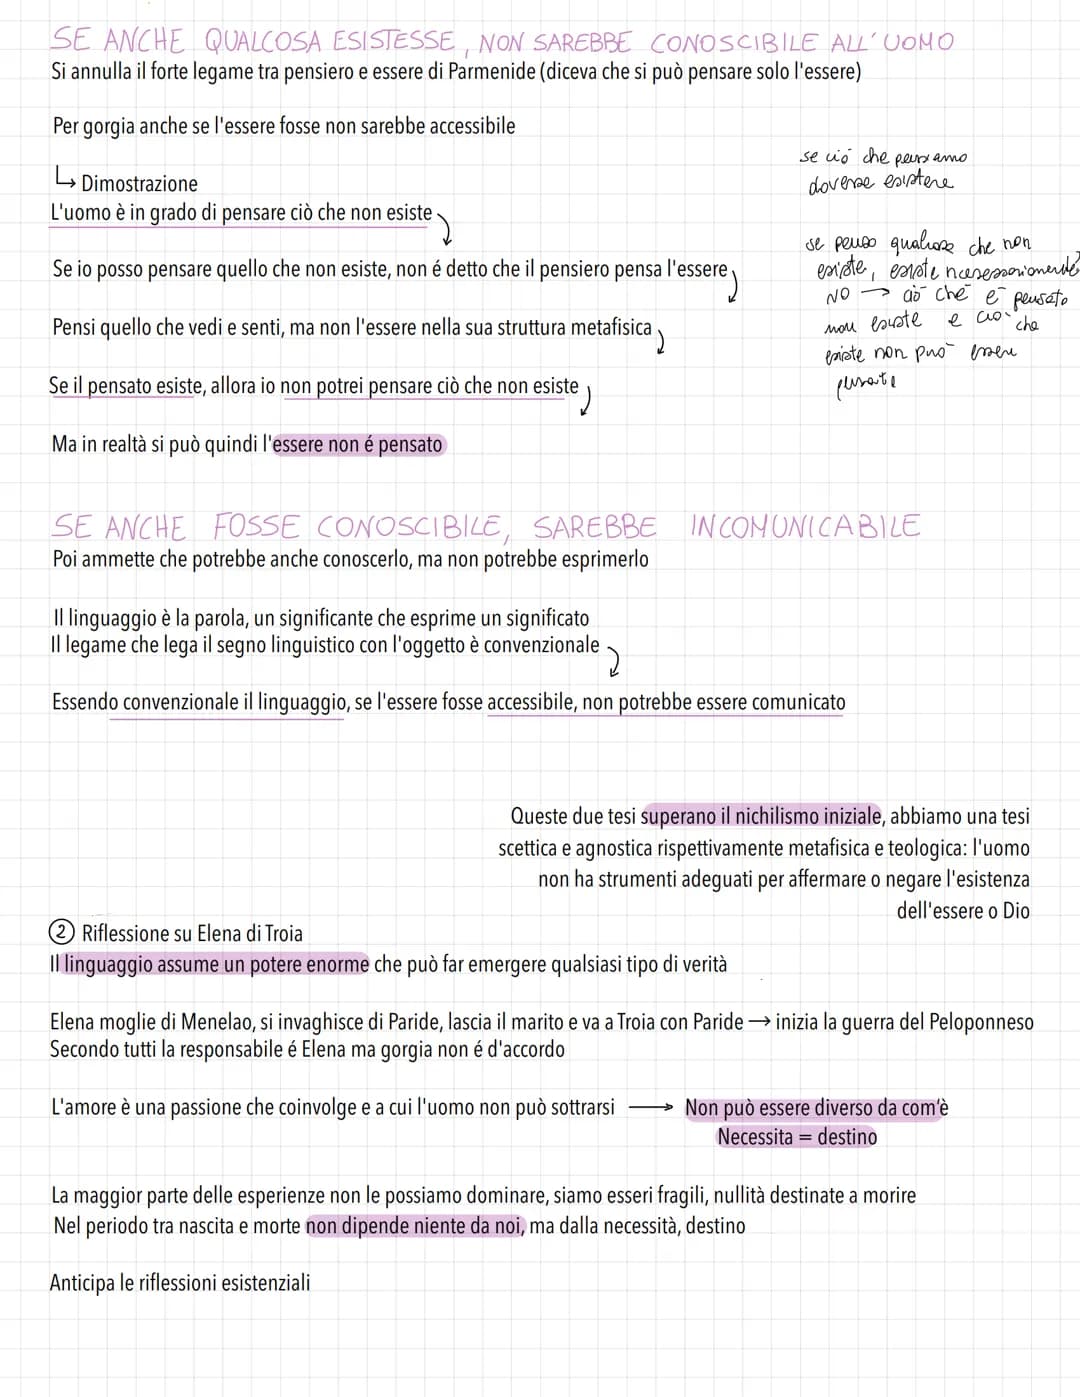 SE ANCHE QUALCOSA ESISTESSE, NON SAREBBE CONOSCIBILE ALL'UOMO
Si annulla il forte legame tra pensiero e essere di Parmenide (diceva che si può pensare solo l'essere)
Per gorgia anche se l'essere fosse non sarebbe accessibile
↳ Dimostrazione
L'uomo è in grado di pensare ciò che non esiste
Se io posso pensare quello che non esiste, non é detto che il pensiero pensa l'essere
Pensi quello che vedi e senti, ma non l'essere nella sua struttura metafisica
Se il pensato esiste, allora io non potrei pensare ciò che non esiste
Ma in realtà si può quindi l'essere non é pensato
se ciò che pensiamo
dovesse esistere
se penso qualcosa che non
esiste, esiste necessariamente?
NO → ciò che è pensato
non esiste e ciò che
esiste non può essere
pensato
SE ANCHE FOSSE CONOSCIBILE, SAREBBE INCOMUNICABILE
Poi ammette che potrebbe anche conoscerlo, ma non potrebbe esprimerlo
Il linguaggio è la parola, un significante che esprime un significato
Il legame che lega il segno linguistico con l'oggetto è convenzionale
Essendo convenzionale il linguaggio, se l'essere fosse accessibile, non potrebbe essere comunicato
Queste due tesi superano il nichilismo iniziale, abbiamo una tesi
scettica e agnostica rispettivamente metafisica e teologica: l'uomo
non ha strumenti adeguati per affermare o negare l'esistenza
dell'essere o Dio
② Riflessione su Elena di Troia
Il linguaggio assume un potere enorme che può far emergere qualsiasi tipo di verità
Elena moglie di Menelao, si invaghisce di Paride, lascia il marito e va a Troia con Paride → inizia la guerra del Peloponneso
Secondo tutti la responsabile é Elena ma gorgia non é d'accordo
L'amore è una passione che coinvolge e a cui l'uomo non può sottrarsi → Non può essere diverso da com'è
Necessita = destino
La maggior parte delle esperienze non le possiamo dominare, siamo esseri fragili, nullità destinate a morire
Nel periodo tra nascita e morte non dipende niente da noi, ma dalla necessità, destino
Anticipa le riflessioni esistenziali